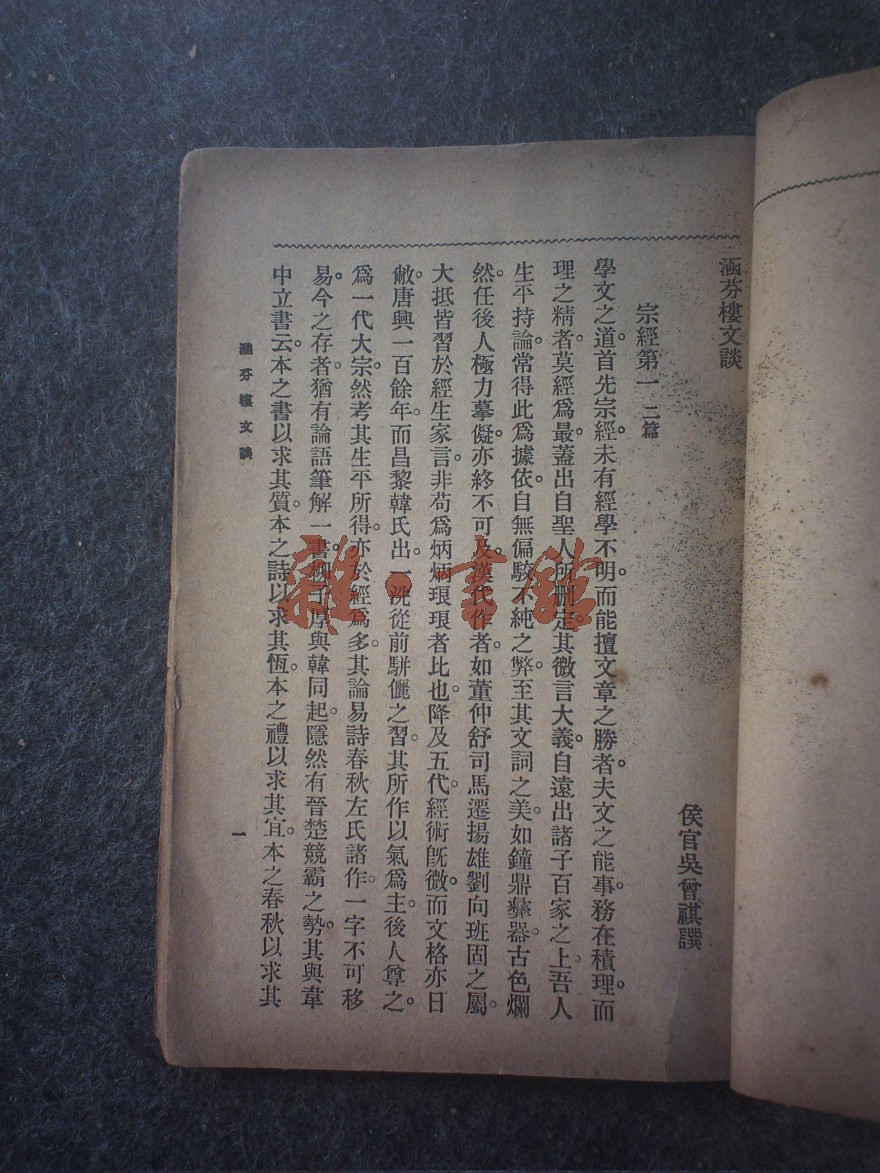 涵芬樓文談
侯官吳曾祺譔
宗經第一 二篇
學文之道。首先宗經。未有經學不明。而能擅文章之勝者。夫文之能事。務在積理。而
理之精者。莫經爲最。蓋出自聖人所刪定。其微言大義。自遠出諸子百家之上。吾人
生平持論。常得此爲據依。自無偏駮不純之弊。至其文詞之美。如鐘鼎彝器。古色爛
然。任後人極力摹儗。亦終不可及。漢代作者。如董仲舒司馬遷揚雄劉向班固之屬。
大抵皆習於經生家言。非苟爲炳炳琅琅者比也。降及五代。經術既微。而文格亦日
敝。唐興一百餘年。而昌黎韓氏出。一洗從前駢儷之習。其所作以氣爲主。後人尊之。
爲一代大宗。然考其生平所得。亦於經爲多。其論易詩春秋左氏諸作。一字不可移
易。今之存者。猶有論語筆解一書。柳子厚與韓同起。隱然有晉楚競霸之勢。其與韋
中立書云。本之書以求其質。本之詩以求其恆。本之禮以求其宜。本之春秋以求其
涵芬樓文談
一
雜·書館